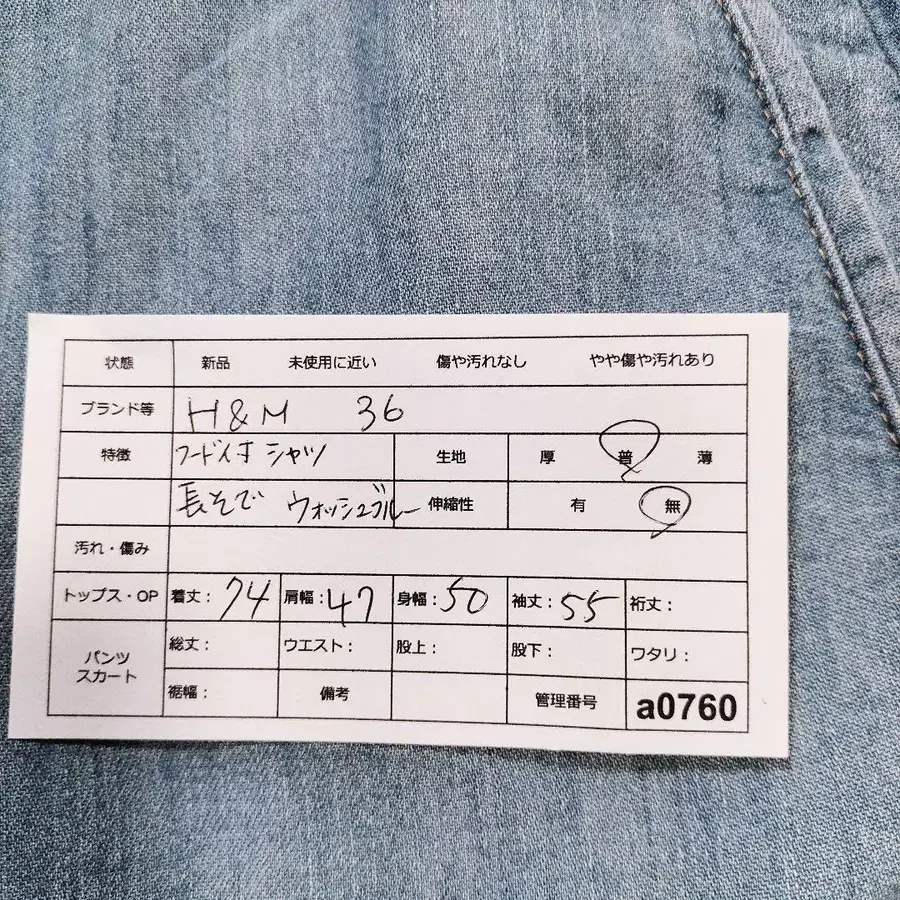 状態 新品 未使用に近い 傷や汚れなし やや傷や汚れあり
ブランド等 H&M 36
特徴 フード付 シャツ 生地 厚 普 薄
長そで ウォッシュブルー 伸縮性 有 無
汚れ・傷み
トップス・OP 着丈：74 肩幅：47 身幅：50 袖丈：55 裄丈：
パンツ スカート 総丈： ウエスト： 股上： 股下： ワタリ：
裾幅： 備考 管理番号 a0760